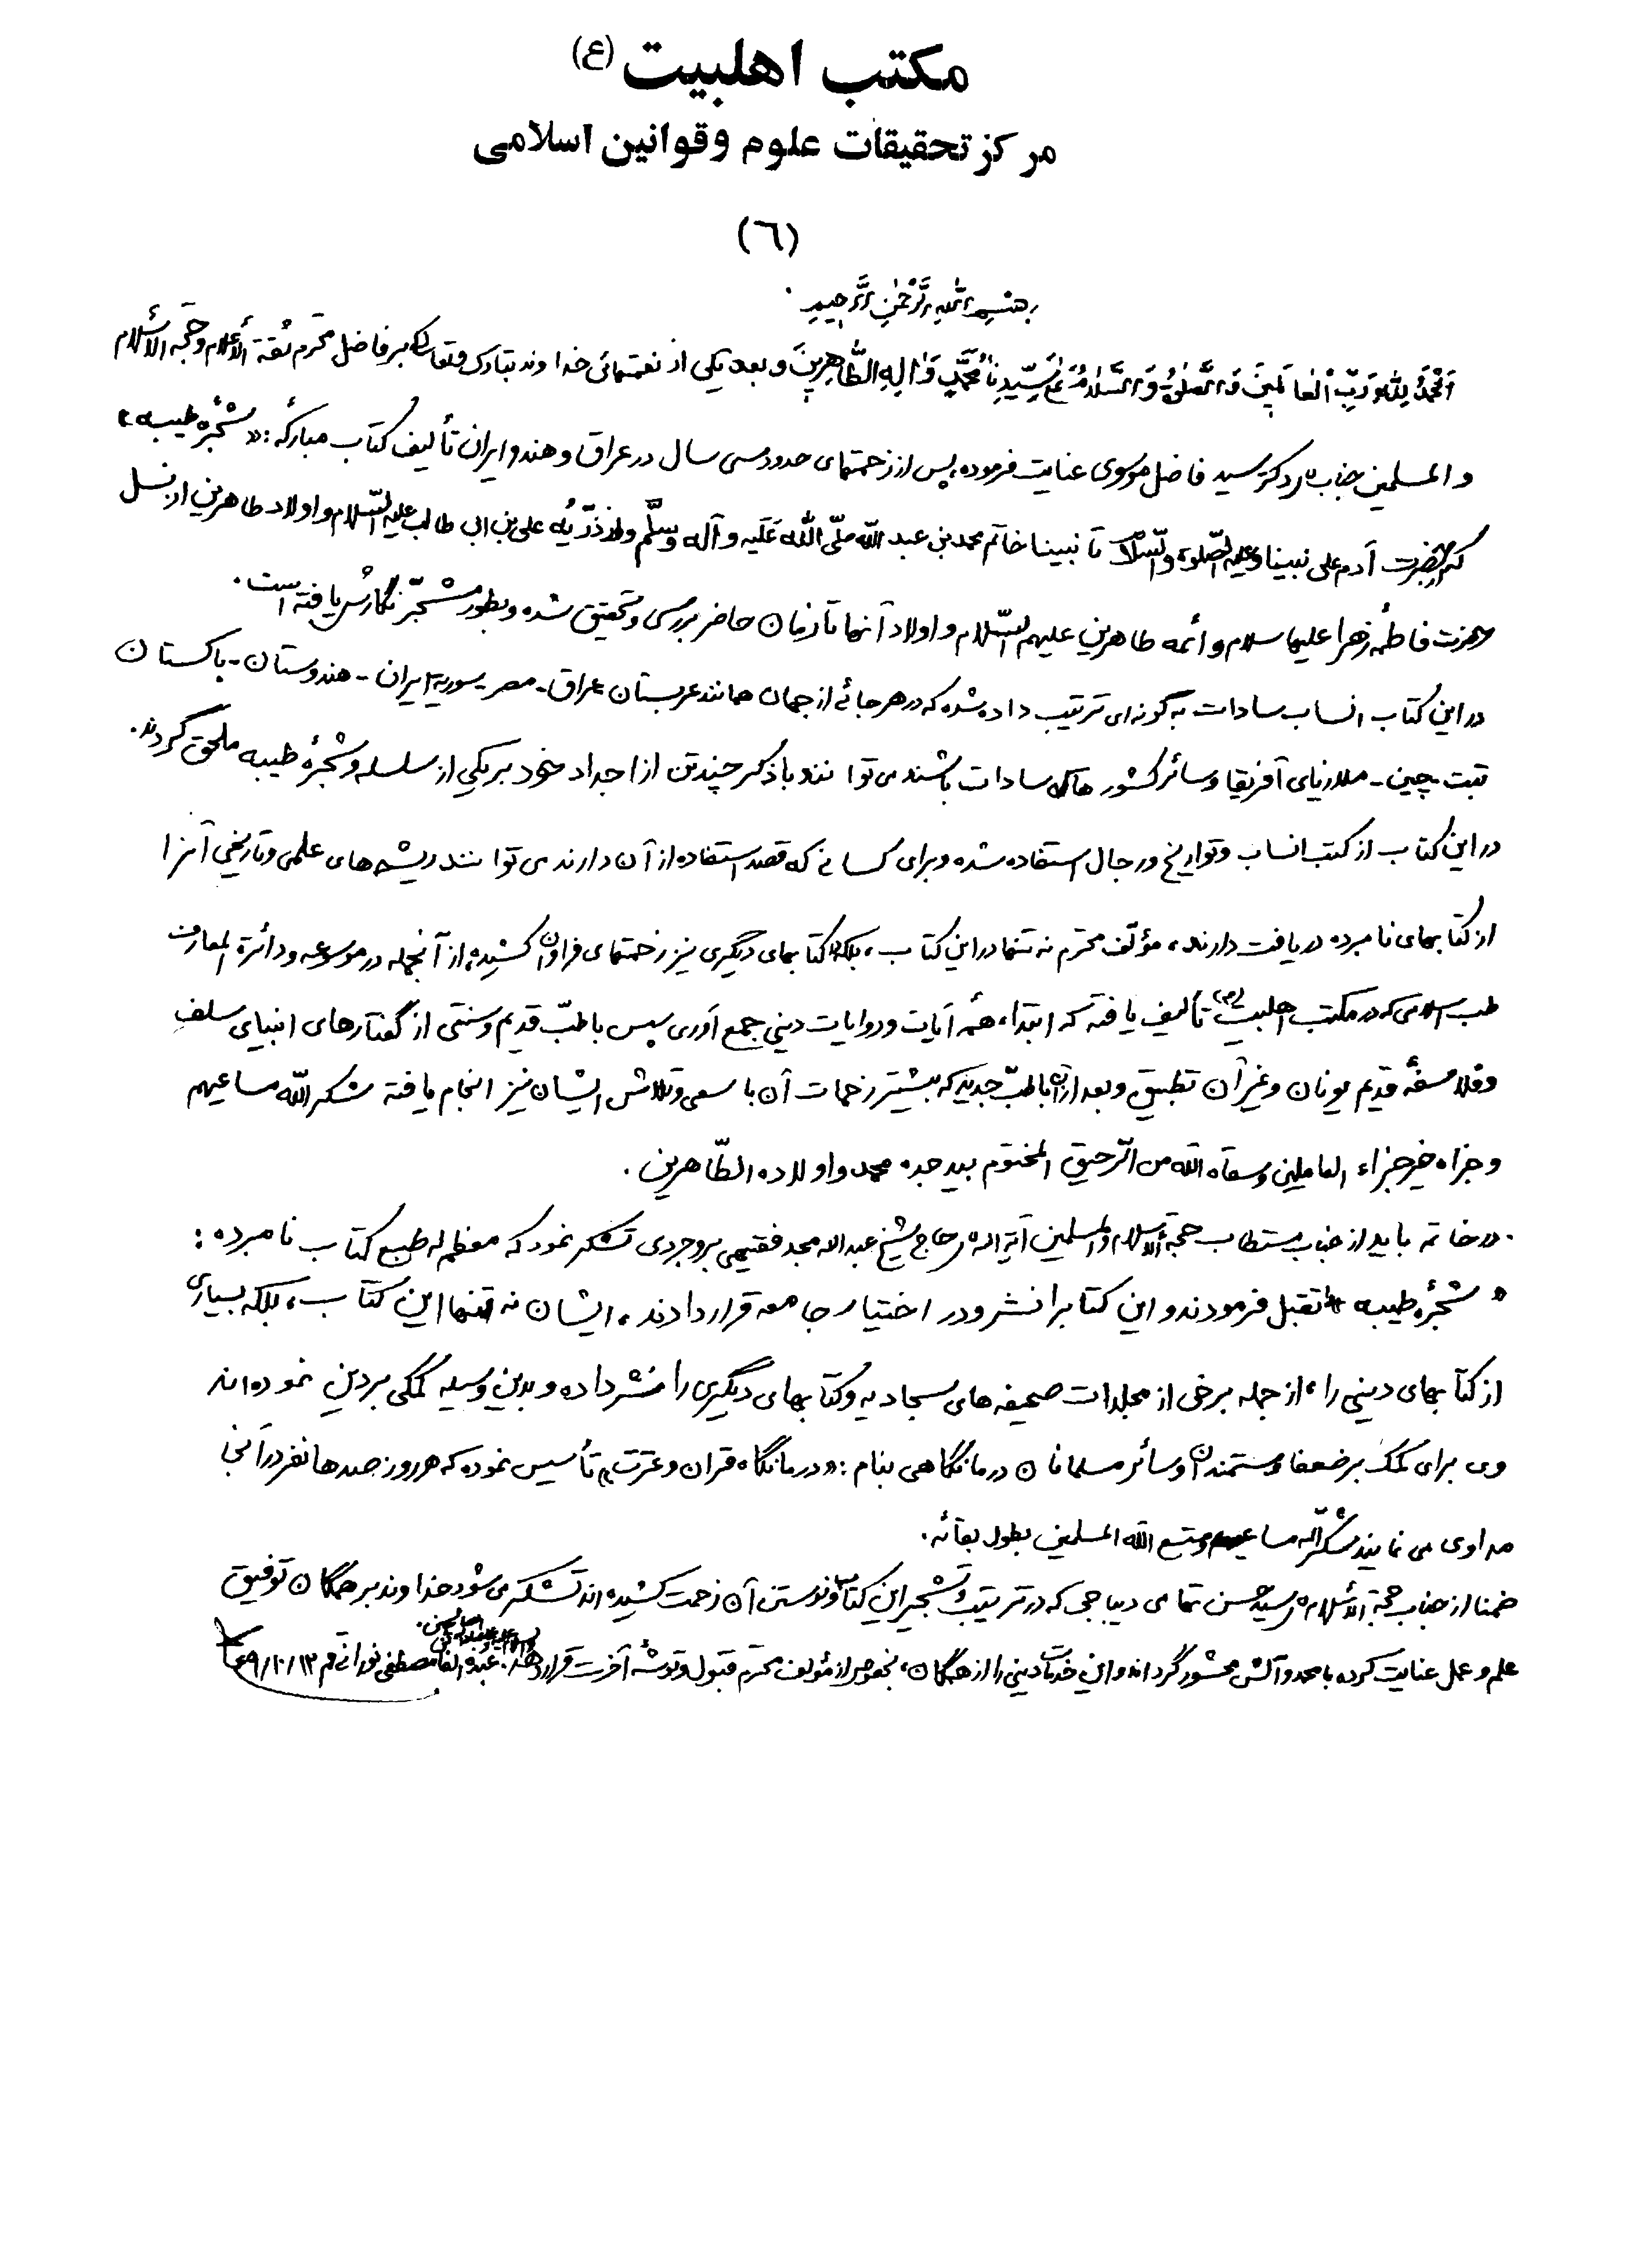 مکتب اهلبیت (ع)
مرکز تحقیقات علوم و قوانین اسلامی
(٦)
بِسْمِ اللهِ الرَّحْمٰنِ الرَّحِیمِ .
اَلْحَمْدُ لِلّٰهِ رَبِّ الْعٰالَمِینَ وَ الصَّلٰوةُ وَ السَّلٰامُ عَلٰی سَیِّدِنٰا مُحَمَّدٍ وَ اٰلِهِ الطّٰاهِرِینَ و بعد یکی از نعمتهای خداوند تبارک و تعالی بر فاضل محترم ثقة الأعلام و حجة الاسلام
و المسلمین جناب دکتر سید فاضل موسوی عنایت فرموده، پس از زحمتهای حدود سی سال در عراق و هند و ایران تألیف کتاب مبارکهٔ: «شجرهٔ طیبه»
که از حضرت آدم علی نبینا و علیه الصلوة و السلام تا نبینا خاتم محمد بن عبد الله صلّی اللّه علیه و آله و سلّم و از ذرّیهٔ علی بن ابی طالب علیه السّلام و اولاد طاهرین از نسل
حضرت فاطمهٔ زهرا علیها سلام و ائمه طاهرین علیهم السّلام و اولاد آنها تا زمان حاضر بررسی و تحقیق شده و بطور مشجّر نگارش یافته است.
در این کتاب انساب سادات به گونه‌ای ترتیب داده شده که در هر جائی از جهان همانند عربستان عراق - مصر - سوریه ایران - هندوستان - پاکستان
تبت - چین - آفریقا و سائر کشورهای سادات باشند می توانند با ذکر چند تن از اجداد خود بر یکی از سلسله و شجرهٔ طیبه ملحق گردند.
در این کتاب از کتب انساب و تواریخ و رجال استفاده شده و برای کسانی که قصد استفاده از آن دارند می توانند ریشه های علمی و تاریخی آنرا
از کتابهای نامبرده دریافت دارند، مؤلف محترم نه تنها در این کتاب، بلکه کتابهای دیگری نیز زحمتهای فراوان کشیده، از آنجمله در موسوعه و دائرة المعارف
طب اسلامی که در مکتب اهلبیت (ع) تألیف یافته که ابتداء همهٔ آیات و روایات دینی جمع آوری سپس با طبّ قدیم و سنتی از گفتارهای انبیای سلف
و فلاسفهٔ قدیم یونان و غیر آن تطبیق و بعد از آن با طبّ جدید که بیشتر زحمات آن با سعی و تلاش ایشان نیز انجام یافته شکر اللّه مساعیهم
و جزاه خیر جزاء العاملین و سقاه اللّه من الرّحیق المختوم بید جده محمد و اولاده الطّاهرین.
در خاتمه باید از جناب مستطاب حجة الاسلام و المسلمین آیة الله حاج شیخ عبد الله مجد فقیهی بروجردی تشکر نمود که معظم له طبع کتاب نامبرده:
«شجرهٔ طیبه» تقبل فرمودند و این کتابرا نشر و در اختیار جامعه قرار دادند، ایشان نه تنها این کتاب، بلکه بسیاری
از کتابهای دینی را، از جمله برخی از مجلدات صحیفه های سجادیه و کتابهای دیگری را نشر داده و بدین وسیله کمکی بر دین نموده اند
وی برای کمک بر ضعفا و مستمندان و سائر مسلمانان درمانگاهی بنام: «درمانگاه قرآن و عترت» تأسیس نموده که هر روز صدها نفر در آنجا
مداوی می نمایند شکر اللّه مساعیهم و متع اللّه المسلمین بطول بقائه.
ضمنا از جناب حجة الاسلام سید حسن تمامی دیباجی که در ترتیب و تشجیر این کتاب و نوشتن آن زحمت کشیده اند تشکر می شود خداوند بر همگان توفیق
علم و عمل عنایت کرده با محمد و آلش محشور گرداند و این خدمات دینی را از همگان، بخصوص از مؤلف محترم قبول و توشهٔ آخرت قرار دهد. مصطفی نورانی قم ۶۹/۱۰/۱۳